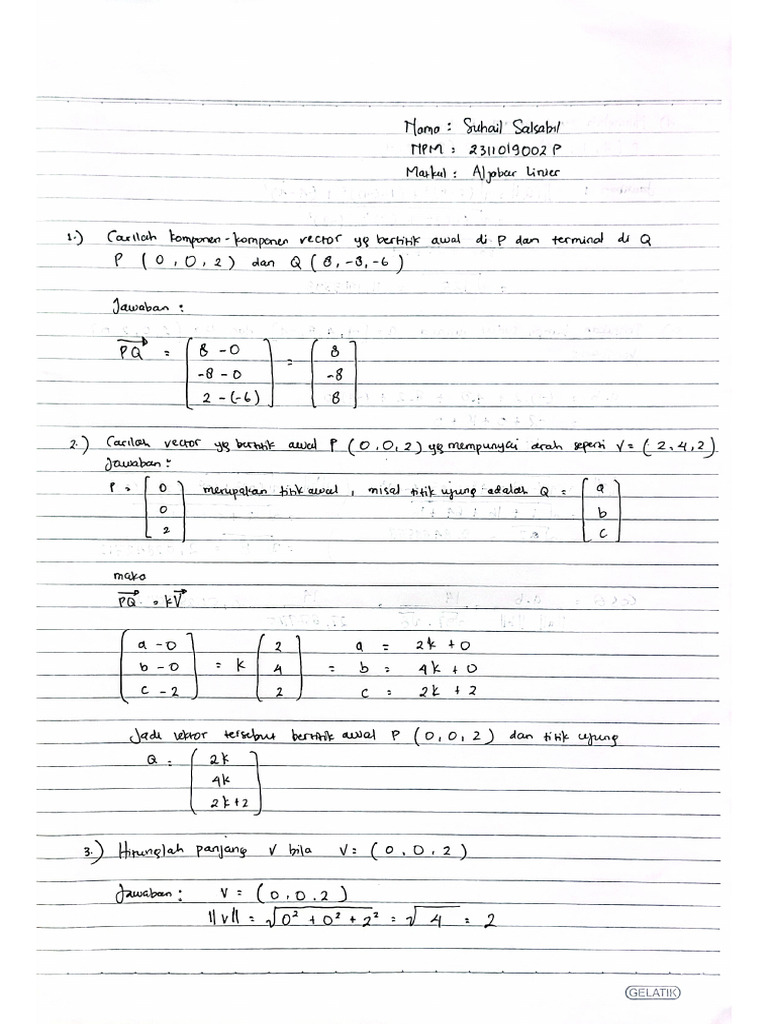 Nama : Suhail Salsabil
NPM : 2311019002 P
Matkul : Aljabar Linier
1.) Carilah komponen-komponen vector yg bertitik awal di P dan terminal di Q
P ( 0 , 0 , 2 ) dan Q ( 8 , -8 , -6 )
Jawaban :
PQ = [ 8 - 0 ] = [ 8 ]
-8 - 0   -8
2 - (-6)   8
2.) Carilah vector yg bertitik awal P ( 0, 0, 2 ) yg mempunyai arah seperti V = ( 2, 4, 2 )
Jawaban :
P = [ 0 ] merupakan titik awal , misal titik ujung adalah Q = [ a ]
0   b
2   c
maka
PQ = kV
( a - 0 ) = k ( 2 ) = a = 2k + 0
b - 0   4   b = 4k + 0
c - 2   2   c = 2k + 2
Jadi vektor tersebut bertitik awal P ( 0, 0, 2 ) dan titik ujung
Q = ( 2k )
4k
2k+2
3.) Hitunglah panjang V bila V = ( 0 , 0 , 2 )
Jawaban : V = ( 0 , 0 . 2 )
||V|| = √0² + 0² + 2² = √4 = 2
GELATIK